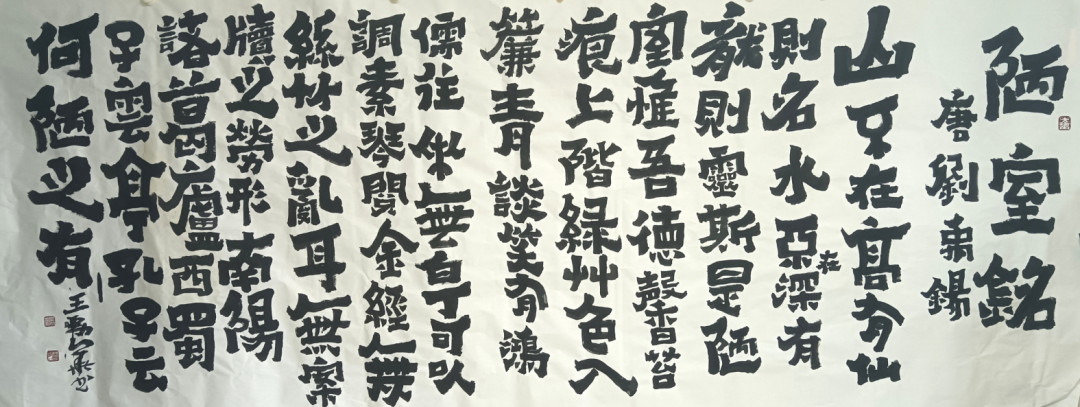 陋室銘
唐劉禹錫
山不在高有仙
則名水不在深有
龍則靈斯是陋
室惟吾德馨苔
痕上階緑艸色入
簾青談笑有鴻
儒往來無白丁可以
調素琴閱金經無
絲竹之亂耳無案
牘之勞形南陽
諸葛廬西蜀
子雲亭孔子云
何陋之有
王